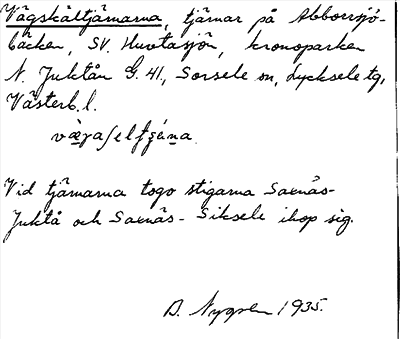 Vägskältjärnarna, tjärnar på Abborrsjö-
bäcken, SV. Huvtasjön, kronoparken
N. Juktån G. 41, Sorsele sn, Lycksele tg,
Västerb. l.
Vid tjärnarna togo stigarna Saxnäs-
Juktå och Saxnäs- Siksele ihop sig.
D. Nygren 1935.